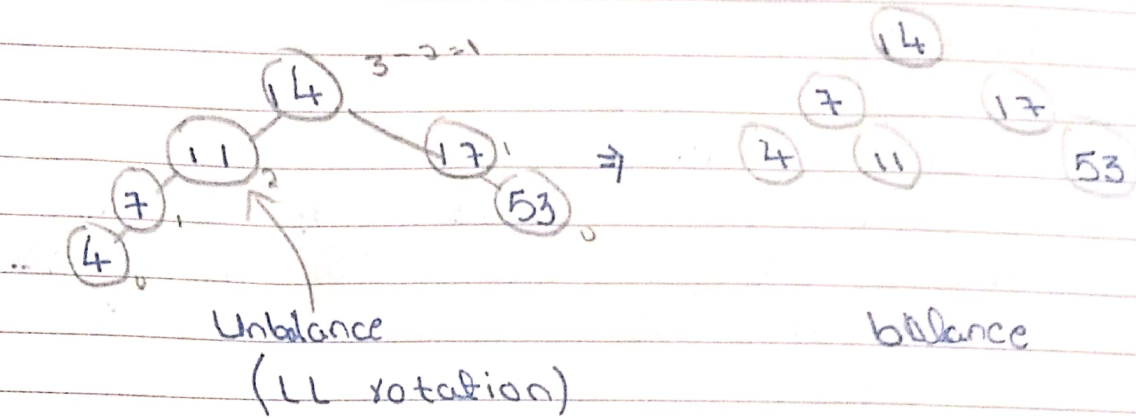 14 3-2=1
11 2 17 1 ⇒
7 1 53 0
4 0
14
7 17
4 11 53
Unbalance
(LL rotation)
balance